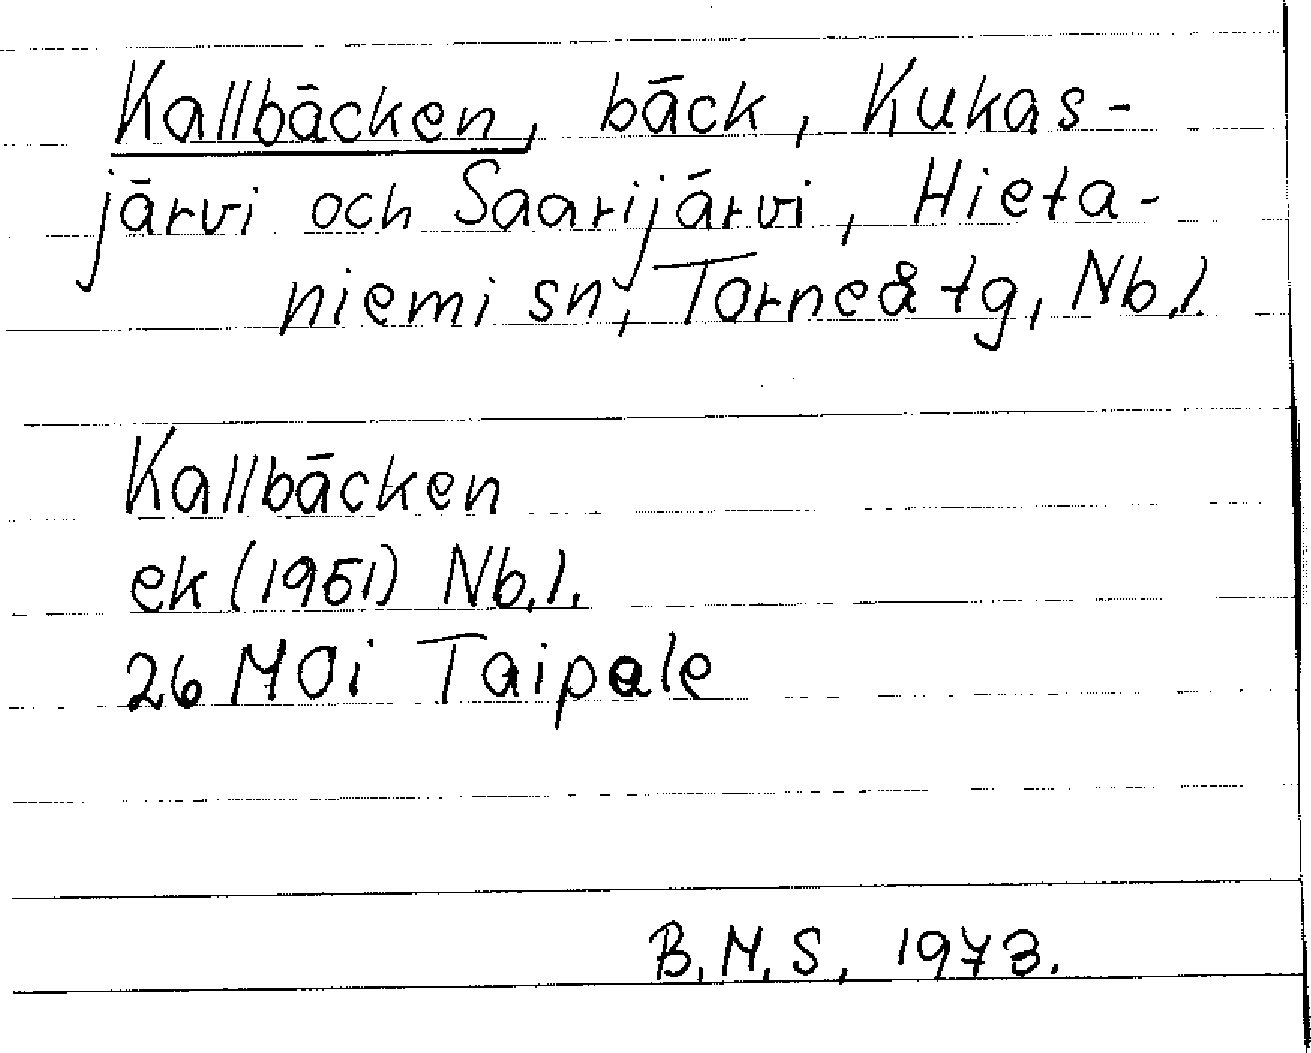 Kallbäcken, bäck, Kukas-
järvi och Saarijärvi, Hieta-
niemi sn, Torneå tg, Nb.l.
Kallbäcken
ek (1951) Nb.l.
26 MOi Taipale
B.M.S, 1973.